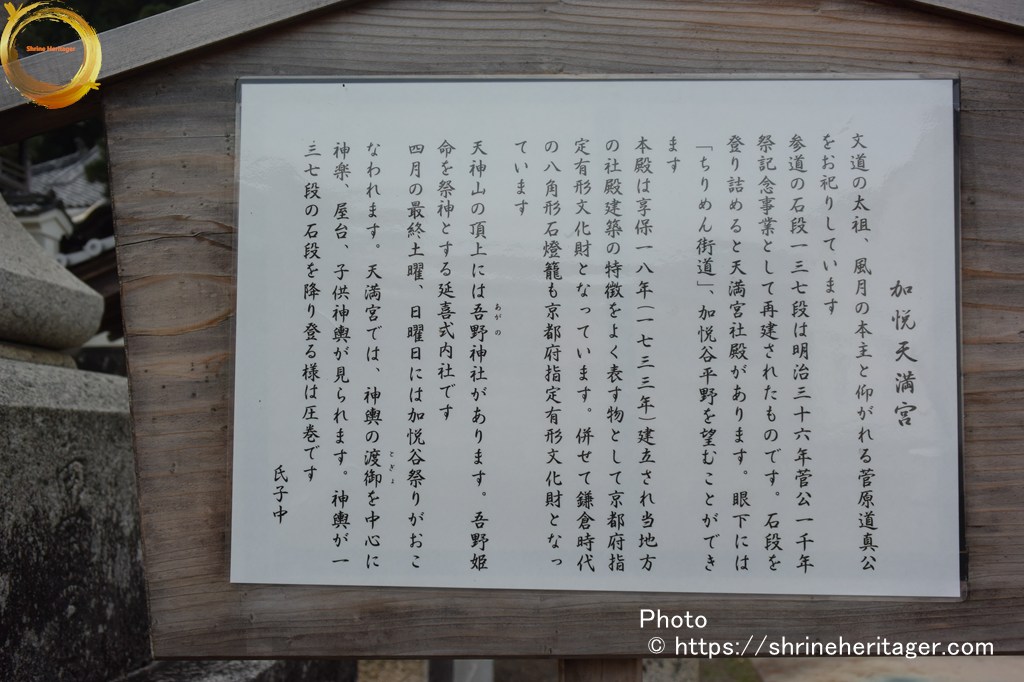 加悦天満宮
文道の太祖、風月の本主と仰がれる菅原道真公
をお祀りしています
参道の石段一三七段は明治三十六年菅公一千年
祭記念事業として再建されたものです。石段を
登り詰めると天満宮社殿があります。眼下には
「ちりめん街道」、加悦谷平野を望むことができ
ます
本殿は享保一八年(一七三三年)建立され当地方
の社殿建築の特徴をよく表す物として京都府指
定有形文化財となっています。併せて鎌倉時代
の八角形石燈籠も京都府指定有形文化財となっ
ています
天神山の頂上には吾野神社があります。吾野姫
あがの
命を祭神とする延喜式内社です
四月の最終土曜、日曜日には加悦谷祭りがおこ
なわれます。天満宮では、神輿の渡御を中心に
とぎょ
神楽、屋台、子供神輿が見られます。神輿が一
三七段の石段を降り登る様は圧巻です
氏子中
Shrine Heritager
Photo
© https://shrineheritager.com